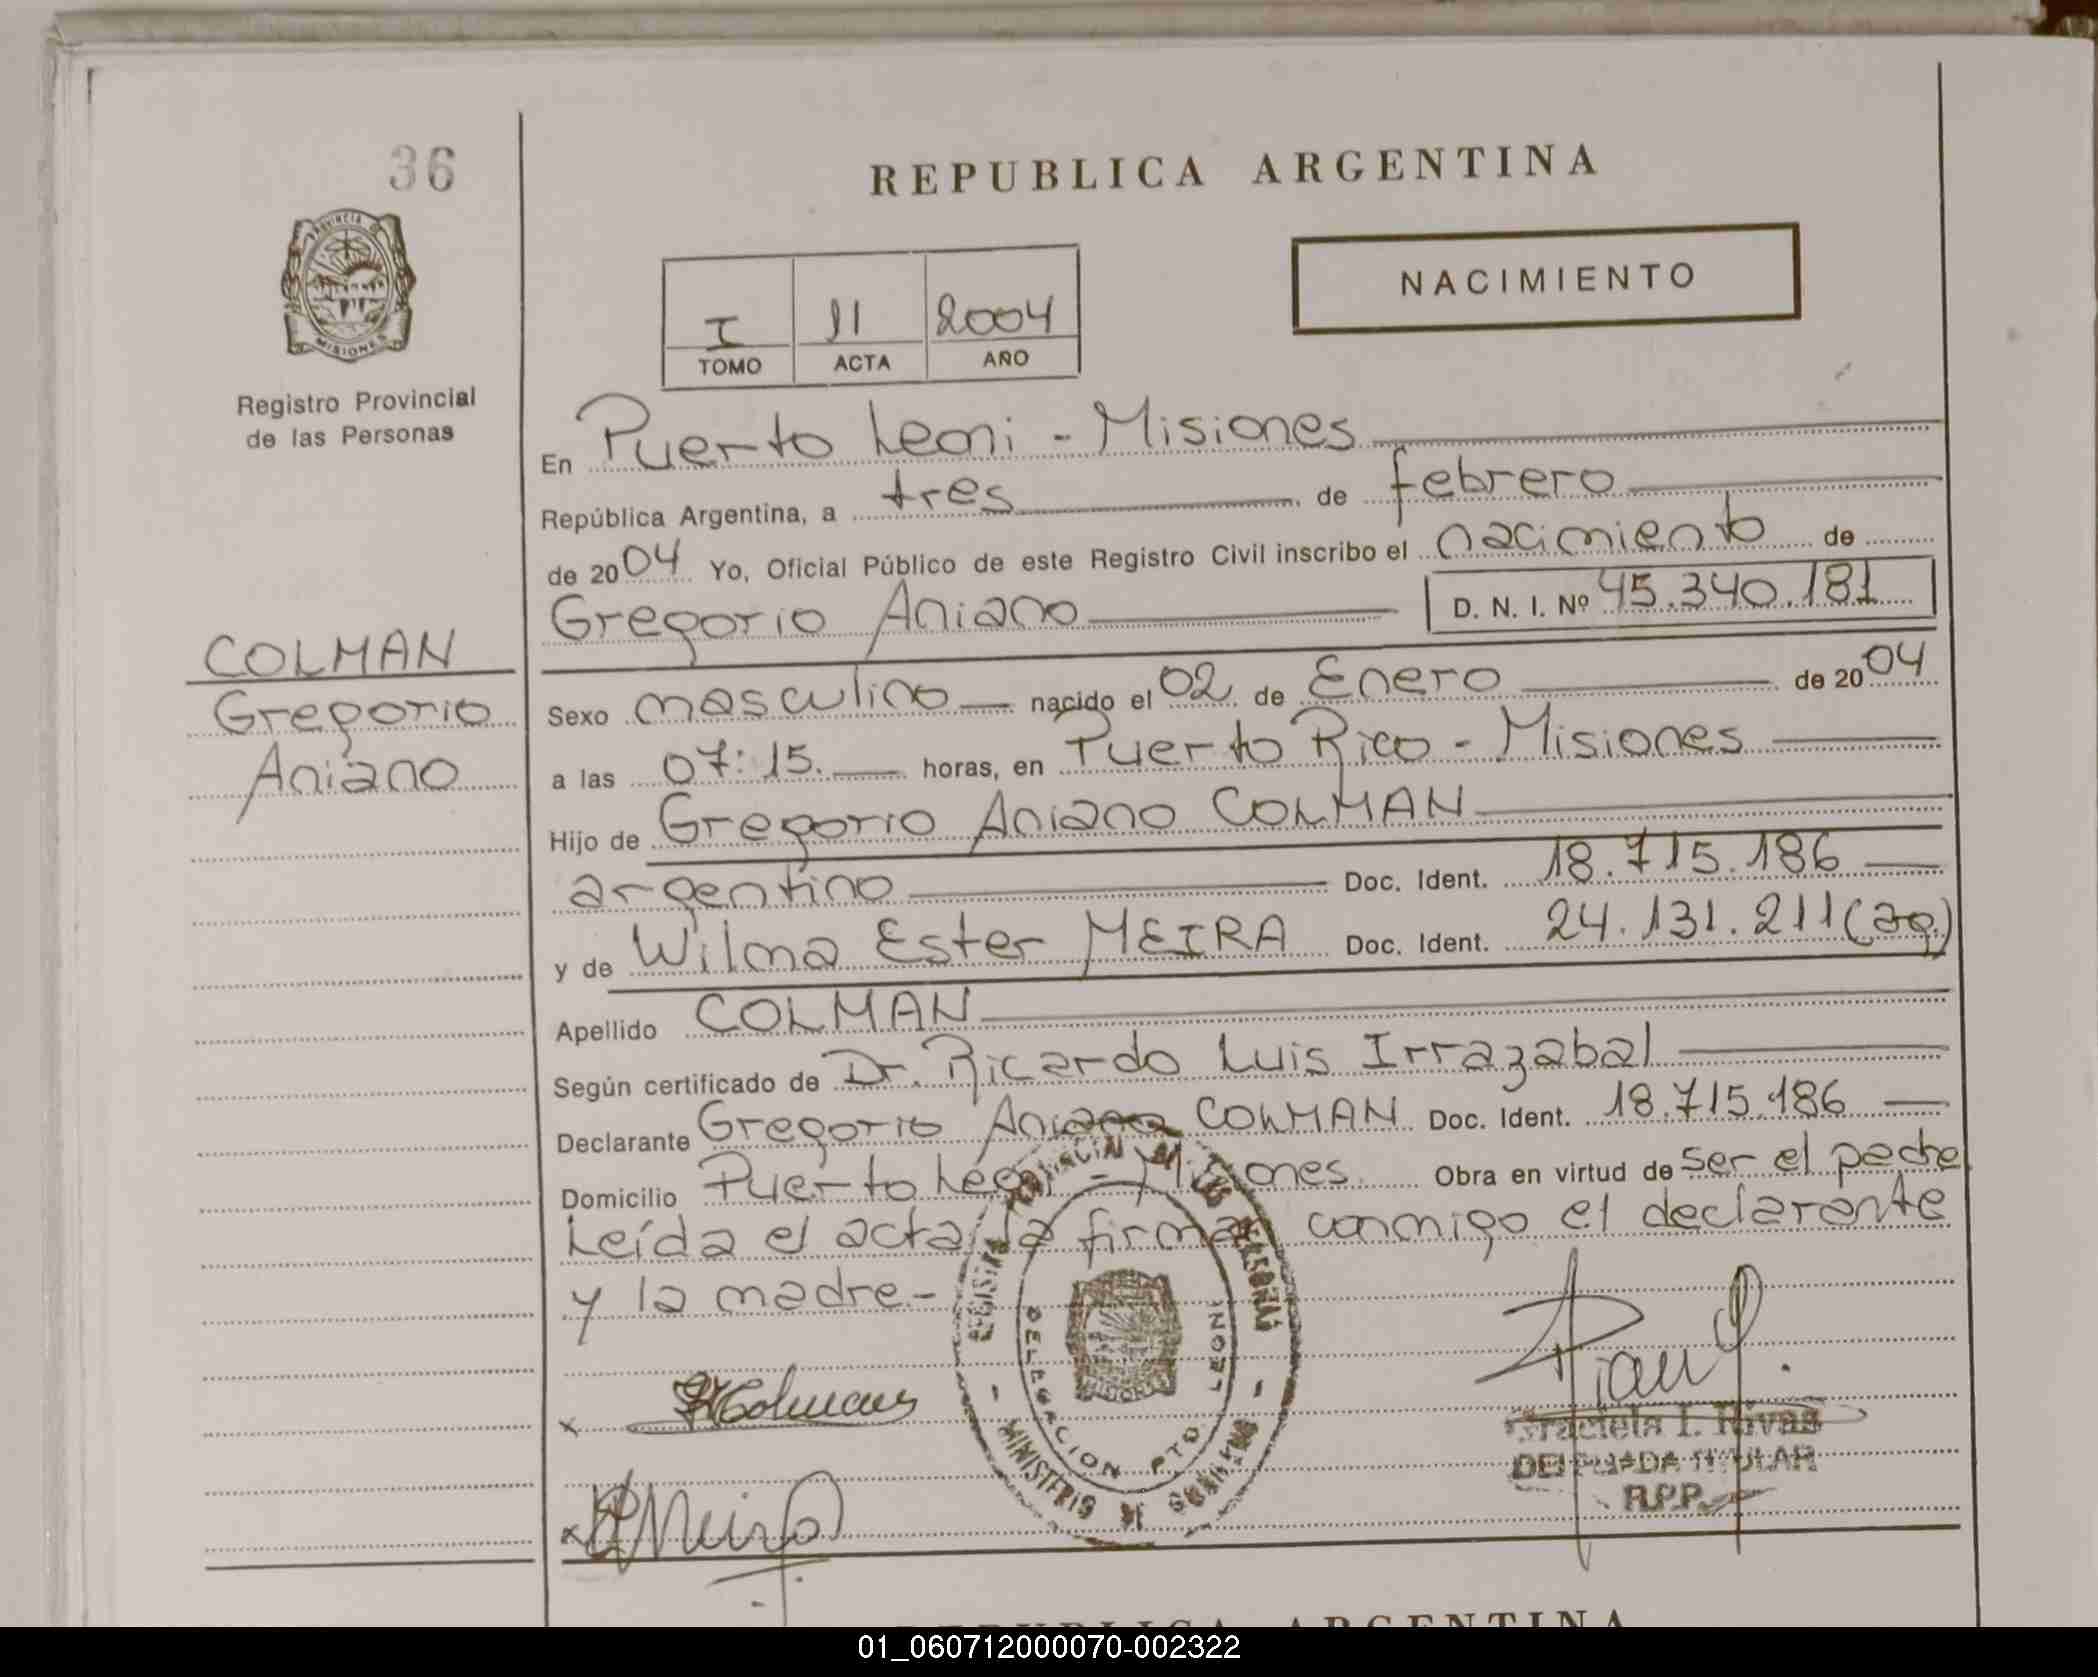 36
REPUBLICA ARGENTINA
PROVINCIA D
MISIONES
I 11 2004
TOMO ACTA AÑO
NACIMIENTO
Registro Provincial
de las Personas
En Puerto Leoni - Misiones
República Argentina, a tres de febrero
de 2004 Yo, Oficial Público de este Registro Civil inscribo el nacimiento de
Gregorio Aniano D. N. I. Nº 45.340.181
COLMAN
Gregorio
Aniano
Sexo masculino nacido el 02 de Enero de 2004
a las 07:15. horas, en Puerto Rico - Misiones
Hijo de Gregorio Aniano COLMAN
argentino Doc. Ident. 18.715.186
y de Wilma Ester MEIRA Doc. Ident. 24.131.211 (ag.)
Apellido COLMAN
Según certificado de Dr. Ricardo Luis Irrazabal
Declarante Gregorio Aniano COLMAN Doc. Ident. 18.715.186
Domicilio Puerto Leoni - Misiones Obra en virtud de ser el padre
Leída el acta la firman conmigo el declarante
y la madre.-
DELEGACION PTO LEONI
MINISTERIO DE GOBIERNO
x Colman
x Meira
Graciela I. Rivas
DELEGADA TITULAR
R.P.P.
REPUBLICA ARGENTINA
01_060712000070-002322